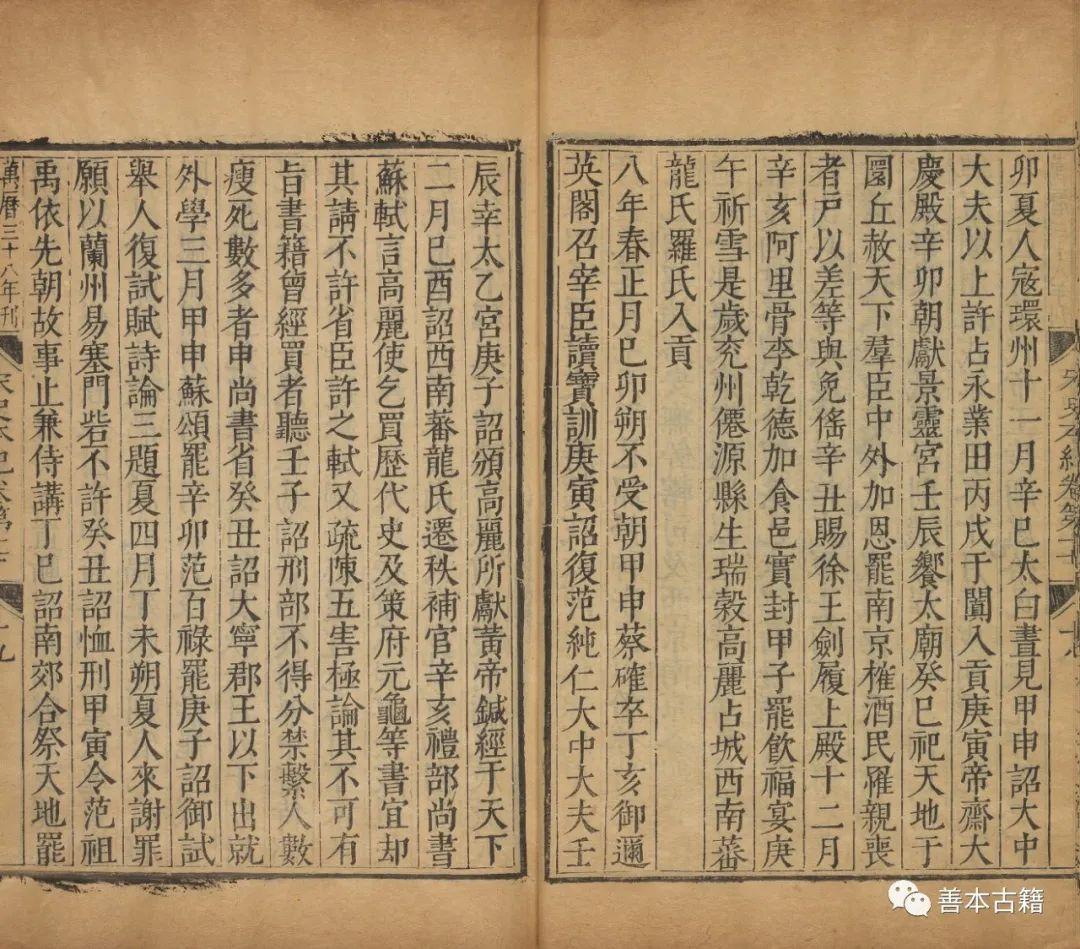 卯夏人寇環州十一月辛巳太白晝見甲申詔大中
大夫以上許占永業田丙戌于闐入貢庚寅帝齋大
慶殿辛卯朝獻景靈宮壬辰饗太廟癸巳祀天地于
圜丘赦天下羣臣中外加恩罷南京榷酒民罹親喪
者戸以差等與免徭辛丑賜徐王劍履上殿十二月
辛亥阿里骨李乾德加食邑實封甲子罷飲福宴庚
午祈雪是歲兖州僊源縣生瑞榖高麗占城西南蕃
龍氏羅氏入貢
八年春正月巳卯朔不受朝甲申蔡確卒丁亥御邇
英閣召宰臣讀寶訓庚寅詔復范純仁大中大夫壬
辰幸太乙宮庚子詔頒高麗所獻黃帝鍼經于天下
二月巳酉詔西南蕃龍氏遷秩補官辛亥禮部尚書
蘇軾言高麗使乞買歷代史及策府元龜等書宜却
其請不許省臣許之軾又疏陳五害極論其不可有
旨書籍曾經買者聽壬子詔刑部不得分禁繫人數
瘦死數多者申尚書省癸丑詔大寧郡王以下出就
外學三月甲申蘇頌罷辛卯范百祿罷庚子詔御試
舉人復試賦詩論三題夏四月丁未朔夏人來謝罪
願以蘭州易塞門砦不許癸丑詔恤刑甲寅令范祖
禹依先朝故事止兼侍講丁巳詔南郊合祭天地罷
萬曆三十八年刊
善本古籍